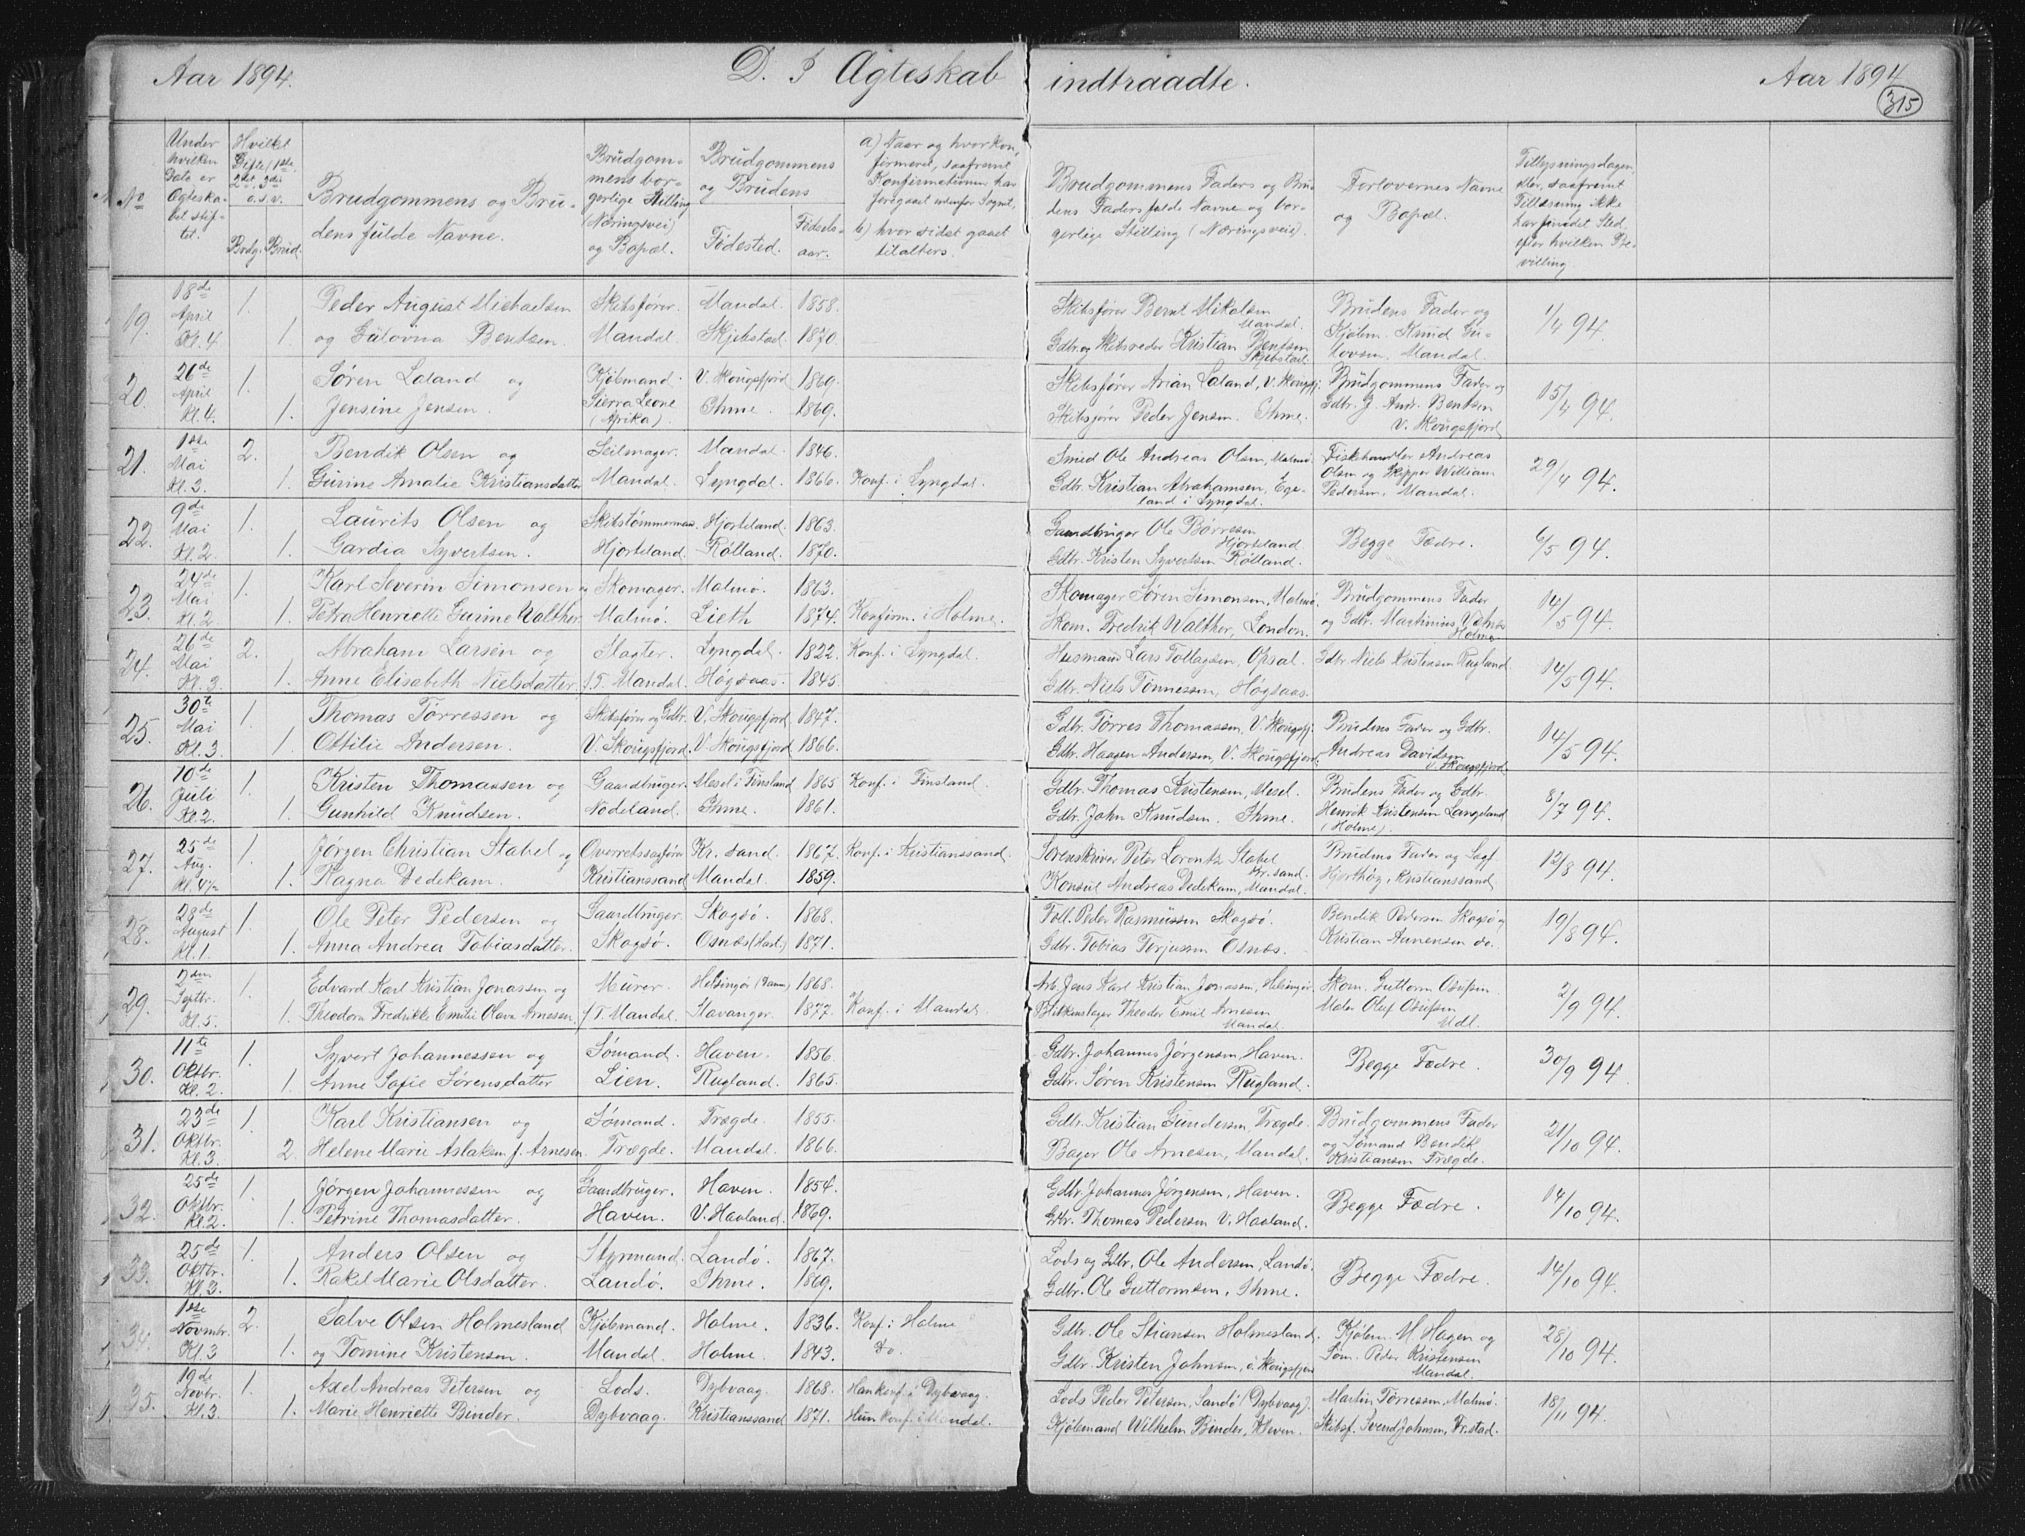 Aar 1894.
D. I Ægteskab indtraadte.
Aar 1894
315
No
Under hvilken Dato er Ægteskabet stiftet.
Hvilket Gifte, 1ste, 2det, 3die o.s.v.
Brdg. Brud.
Brudgommens og Brudens fulde Navne.
Brudgommens borgerlige Stilling (Næringsvei) og Bopæl.
Brudgommens og Brudens
Fødested.
Fødselsaar.
a) Naar og hvor konfirmeret, saafremt Konfirmationen har foregaaet udenfor Sognet,
b) hvor sidst gaaet tilalters.
Brudgommens Faders og Brudens Faders fulde Navne og borgerlige Stilling (Næringsvei).
Forlovernes Navne og Bopæl.
Tillysningsdagen, eller, saafremt Tillysning ikke har fundet Sted, efter hvilken Bevilling
19. 18de April Kl. 4. 1. 1.
Peder August Michaelsen og Gulovna Bentsen.
Skibsfører. Mandal.
Mandal. 1858.
Skjebstad. 1870.
Skibsfører Bernt Mikalsen Mandal.
Gdbr. og Skibsreder Kristian Bentsen Skjebstad.
Brudens Fader og Kjøbm. Knud Gulovsen. Mandal.
1/4 94.
20. 26de April Kl. 4. 1. 1.
Søren Laland og Jensine Jensen.
Kjøbmand. Sierra Leone (Afrika).
V. Skougsfjord 1869.
Ihme. 1869.
Skibsfører Arian Laland, V. Skougsfj.
Skibsfører Peder Jensen. Ihme.
Brudgommens Fader og Gdbr. J. Andr. Bentsen V. Skougsfjord
15/4 94.
21. 1ste Mai Kl. 3. 2. 1.
Bendik Olsen og Gurine Amalie Kristiansdatter
Seilmager. Mandal.
Mandal. 1846.
Lyngdal. 1866. Konf. i Lyngdal.
Smed Ole Andreas Olsen, Malmø.
Gdbr. Kristian Abrahamsen, Egeland i Lyngdal.
Fiskehandler Andreas Olsen og Skipper William Pedersen, Mandal.
29/4 94.
22. 9de Mai Kl. 2. 1. 1.
Laurits Olsen og Gardia Syvertsen.
Skibstømmermand. Hjorteland.
Hjorteland. 1863.
Rølland. 1870.
Gaardbruger Ole Børresen Hjorteland
Gdbr. Kristen Syvertsen Rølland.
Begge Fædre.
6/5 94.
23. 24de Mai Kl. 2 1. 1.
Karl Severin Simonsen og Petra Henriette Gurine Walther
Skomager. Malmø.
Malmø. 1863.
Lieth 1874. Konfirm. i Holme.
Skomager Søren Simonsen, Malmø.
Skom. Fredrik Walther, London.
Brudgommens Fader og Gdbr. Martinius Holme
14/5 94.
24. 26de Mai Kl. 3. 2. 1.
Abraham Larsen og Anne Elisabeth Nielsdatter
Slagter. f. T. Mandal.
Lyngdal. 1822. Konf. i Lyngdal.
Høgsaas. 1845.
Husmand Lars Tollagsen, Opsal.
Gdbr. Niels Tønnessen, Høgsaas.
Gdbr Niels Kristensen Rugland
14/5 94.
25. 30te Mai Kl. 3. 1. 1.
Thomas Tørressen og Ottilie Andersen.
Skibsfører og Gdbr. V. Skougsfjord.
V. Skougsfjord 1847.
V. Skougsfjord 1866.
Gdbr. Tørres Thomassen, V. Skougsfj.
Gdbr. Haagen Andersen, V. Skougsfjord.
Brudens Fader og Gdbr. Andreas Davidsen V. Skougsfjord
14/5 94.
26. 10de Juli Kl. 2. 1. 1.
Kristen Thomassen og Gunhild Knudsen.
Gaardbruger. Nodeland.
Mesel i Finsland 1865 Konf. i Finsland.
Ihme. 1861.
Gdbr. Thomas Kristensen, Mesel.
Gdbr. John Knudsen. Ihme.
Brudens Fader og Gdbr. Henrik Kristensen Langeland (Holme).
8/7 94.
27. 25de Aug. Kl. 4½ 1. 1.
Jørgen Christian Stabel og Ragna Dedekam.
Overretssagfører Kristianssand
Kr. sand. 1867. Konf. i Kristianssand.
Mandal. 1859.
Sorenskriver Peter Lorentz Stabel Kr. sand.
Konsul Andreas Dedekam, Mandal.
Brudens Fader og Sagf. Hjorthøg, Kristianssand
12/8 94.
28. 28de August Kl. 1. 1. 1.
Ole Peter Pedersen og Anna Andrea Tobiasdatter.
Gaardbruger. Skogsø.
Skogsø. 1868.
Osnæs (Hart.) 1871.
Toll. Peder Rasmussen Skogsø.
Gdbr. Tobias Terjusen Osnæs.
Bendik Pedersen Skogsø og Kristian Aanensen do.
19/8 94.
29. 2den Septbr. Kl. 5. 1. 1.
Edvard Karl Kristian Jonassen og Theodora Fredrikke Emilie Olava Arnesen.
Murer. f. T. Mandal.
Helsingør (Danm) 1868.
Stavanger. 1877. Konf. i Mandal.
Arb. Jens Karl Kristian Jonassen, Helsingør.
Blikkenslager Theodor Emil Arnesen Mandal.
Skom. Guttorm Osufsen. Maler Oluf Osufsen Mdl.
2/9 94.
30. 11te Oktbr. Kl. 2. 1. 1.
Syvert Johannessen og Anne Sofie Sørensdatter
Sømand. Lien.
Haven. 1856.
Rugland. 1865.
Gdbr. Johannes Jørgensen, Haven.
Gdbr. Søren Kristensen Rugland.
Begge Fædre.
30/9 94.
31. 23de Oktbr. Kl. 3. 1. 2.
Karl Kristiansen og Helene Marie Aslaksen f. Arnesen.
Sømand. Trægde.
Trægde. 1855.
Mandal. 1866.
Gdbr. Kristian Gundersen, Trægde.
Bager Ole Arnesen, Mandal.
Brudgommens Fader og Sømand Bendik Kristiansen Trægde.
21/10 94.
32. 25de Oktbr. Kl. 2. 1. 1.
Jørgen Johannessen og Petrine Thomasdatter.
Gaardbruger. Haven.
Haven. 1854.
V. Haaland. 1869.
Gdbr. Johannes Jørgensen, Haven.
Gdbr. Thomas Pedersen V. Haaland.
Begge Fædre.
14/10 94.
33. 25de Oktbr. Kl. 3. 1. 1.
Anders Olsen og Rakel Marie Olsdatter.
Styrmand. Landø.
Landø. 1867.
Ihme. 1869.
Lods og Gdbr. Ole Andersen, Landø.
Gdbr. Ole Guttormsen, Ihme.
Begge Fædre.
14/10 94.
34. 1ste Novmbr. Kl. 3 2. 1.
Salve Olsen Holmesland og Tomine Kristensen.
Kjøbmand. Mandal.
Holme. 1836. Konf. i Holme
Holme. 1843. do.
Gdbr. Ole Stiansen Holmesland.
Gdbr. Kristen Johnsen, ö. Skougsfjord
Kjøbm. M. Hagen og Søm. Peder Kristensen Mandal.
28/10 94.
35. 19de Novbr. Kl. 3. 1. 1.
Axel Andreas Petersen og Marie Henriette Binder.
Lods. Dybvaag.
Dybvaag. 1868. Han konf. i Dybvaag.
Kristianssand 1871. Hun konf. i Mandal.
Lods Peder Petersen, Sandø (Dybvaag).
Kjøbmand Wilhelm Binder,
Martin Tørressen, Malmø. Skibsf. Svend Johnsen, Fr.stad.
18/11 94.